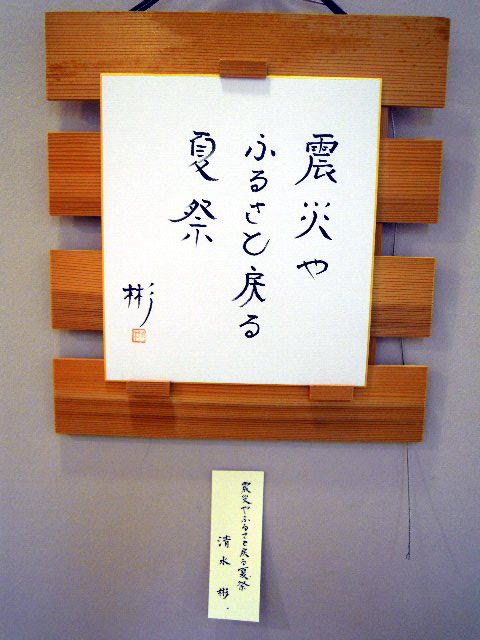 震災や
ふるさと戻る
夏祭
彬
震災やふるさと戻る夏祭
清水 彬